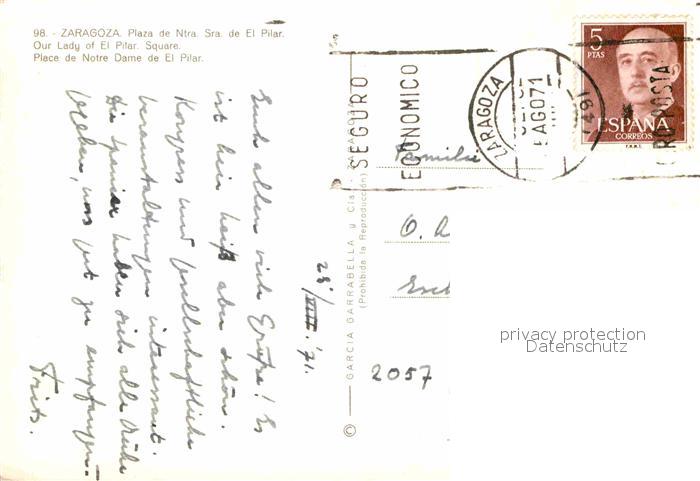 98. - ZARAGOZA. Plaza de Ntra. Sra. de El Pilar.
Our Lady of El Pilar. Square.
Place de Notre Dame de El Pilar.
Euch allen viele Grüße! Es
ist hier heiß aber schön.
Kongress und gesellschaftliche
Veranstaltungen interessant.
Die Spanier haben sich alle Mühe
gegeben, uns gut zu empfangen -
Fritz.
28/VIII. 71.
© GARCIA GARRABELLA y Cía. - ZARAGOZA
(Prohibida la Reproducción)
SEGURO
ECONOMICO
ZARAGOZA
AGO71
5
PTAS
ESPAÑA
CORREOS
F.N.M.T.
Familie
O. A
2057
privacy protection
Datenschutz